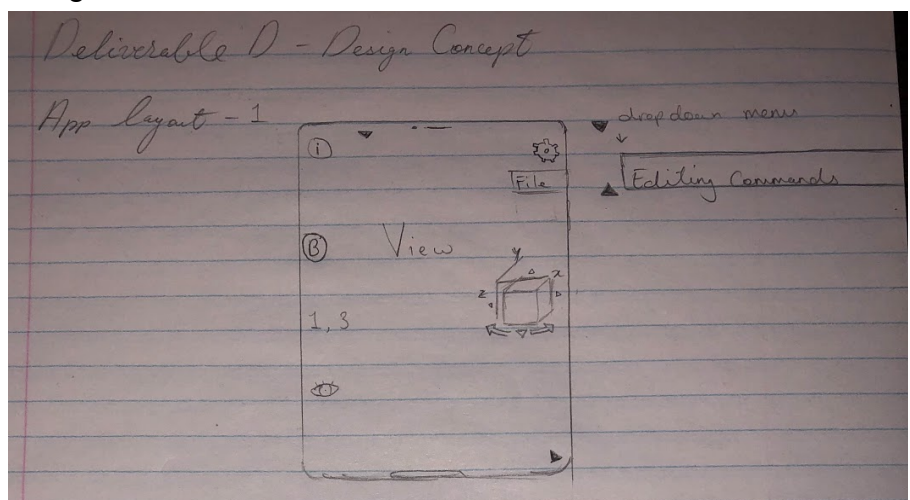 Deliverable D - Design Concept
App layout - 1
dropdown menu
i
File
Editing Commands
B
View
y
x
z
1, 3